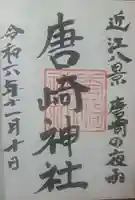 近江八景 唐崎の夜雨
唐崎神社
令和六年十一月十日